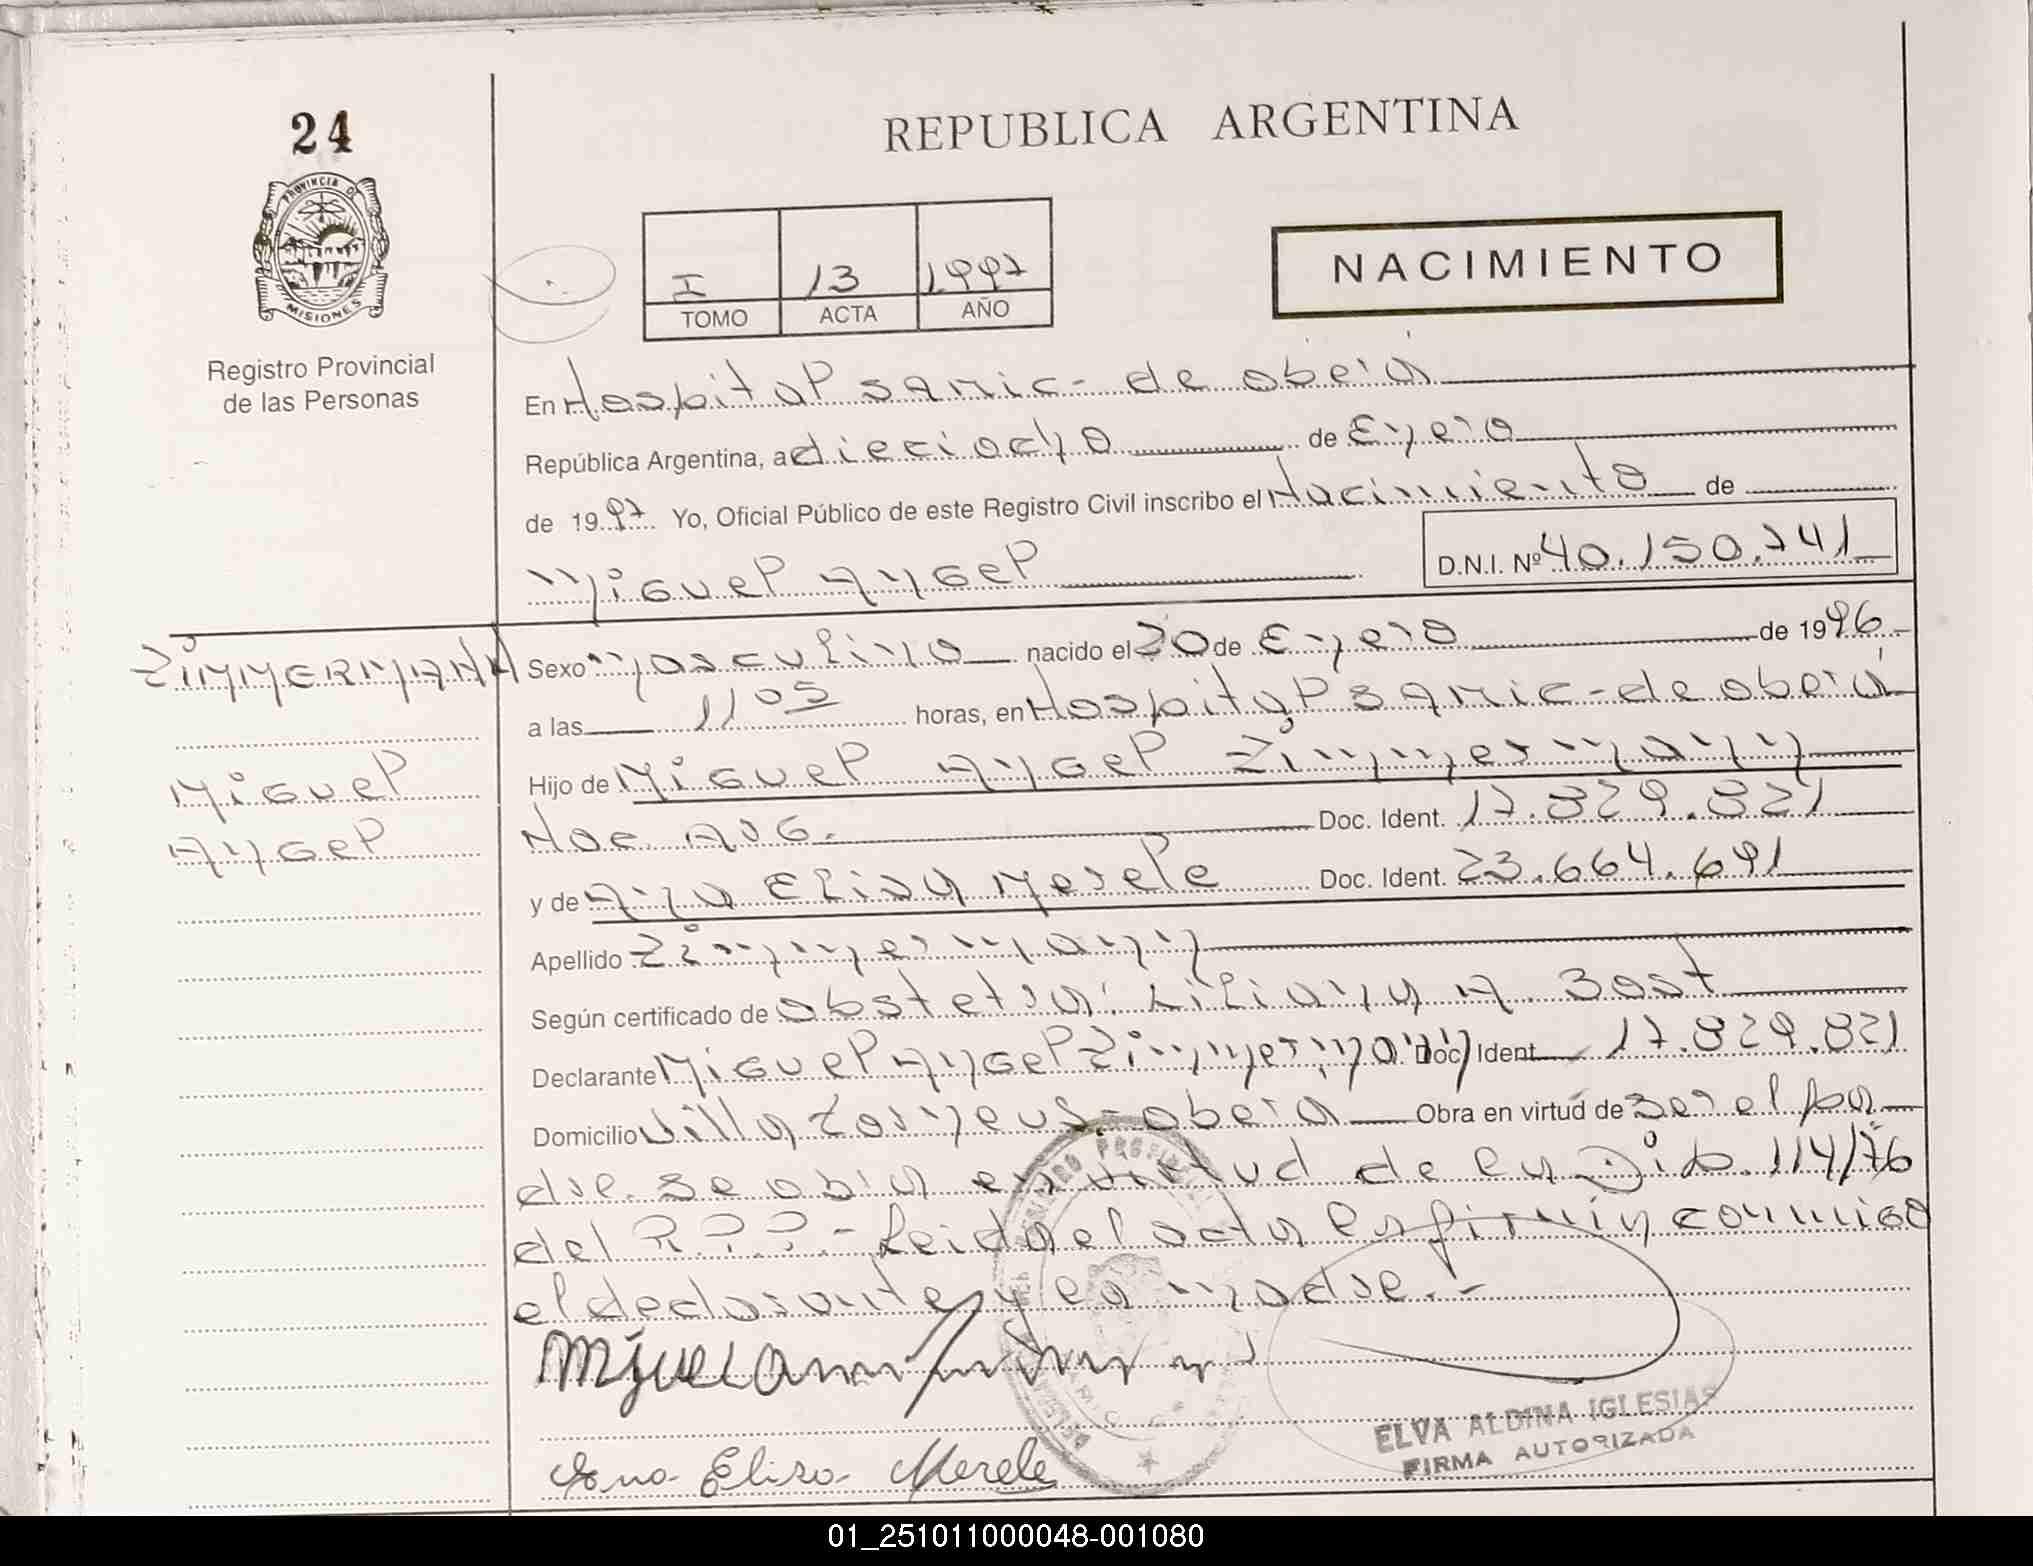 24
PROVINCIA DE
MISIONES
Registro Provincial
de las Personas
REPUBLICA ARGENTINA
I 13 1997
TOMO ACTA AÑO
NACIMIENTO
En Hospital Samic - de oberá
República Argentina, a dieciocho de Enero
de 1997 Yo, Oficial Público de este Registro Civil inscribo el Nacimiento de
Miguel Angel D.N.I. Nº 40.150.741
ZIMMERMANN
Miguel
Angel
Sexo masculino nacido el 20 de Enero de 1996
a las 11 05 horas, en Hospital Samic - de oberá
Hijo de Miguel Angel Zimmermann
Nac. Arg. Doc. Ident. 17.829.821
y de Ana Elisa Merele Doc. Ident. 23.664.691
Apellido Zimmermann
Según certificado de obstetra: Liliana A. Bast
Declarante Miguel Angel Zimmermann Doc. Ident. 17.829.821
Domicilio Villa - oberá Obra en virtud de ser el pa
dre. Se obra en virtud de la Disp. 114/76
del R.P.P. - Leida el acta la firman conmigo
el declarante y la madre. -
Miguel
Ana Elisa Merele
ELVA ALDINA IGLESIAS
FIRMA AUTORIZADA
01_251011000048-001080